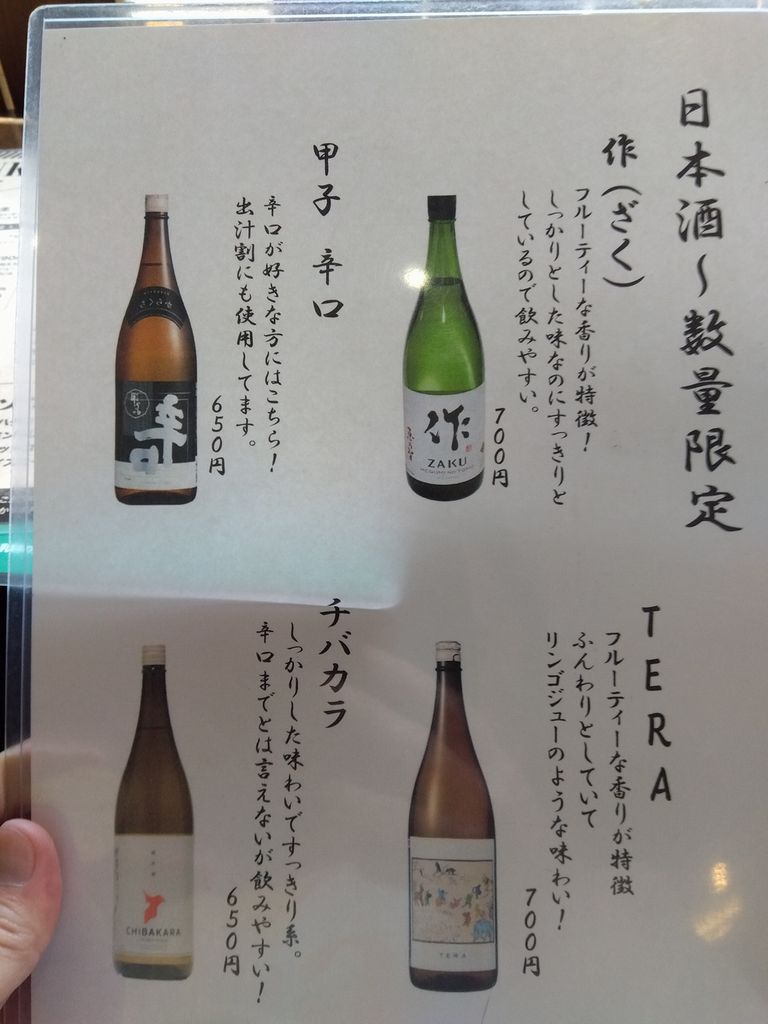 日本酒〜数量限定
作（ざく）
フルーティーな香りが特徴！
しっかりとした味なのにすっきりと
しているので飲みやすい。
700円
作
ZAKU
甲子 辛口
辛口が好きな方にはこちら！
出汁割にも使用してます。
650円
辛口
TERA
フルーティーな香りが特徴
ふんわりとしていて
リンゴジューのような味わい！
700円
TERA
チバカラ
しっかりした味わいですっきり系。
辛口までとは言えないが飲みやすい！
650円
CHIBAKARA